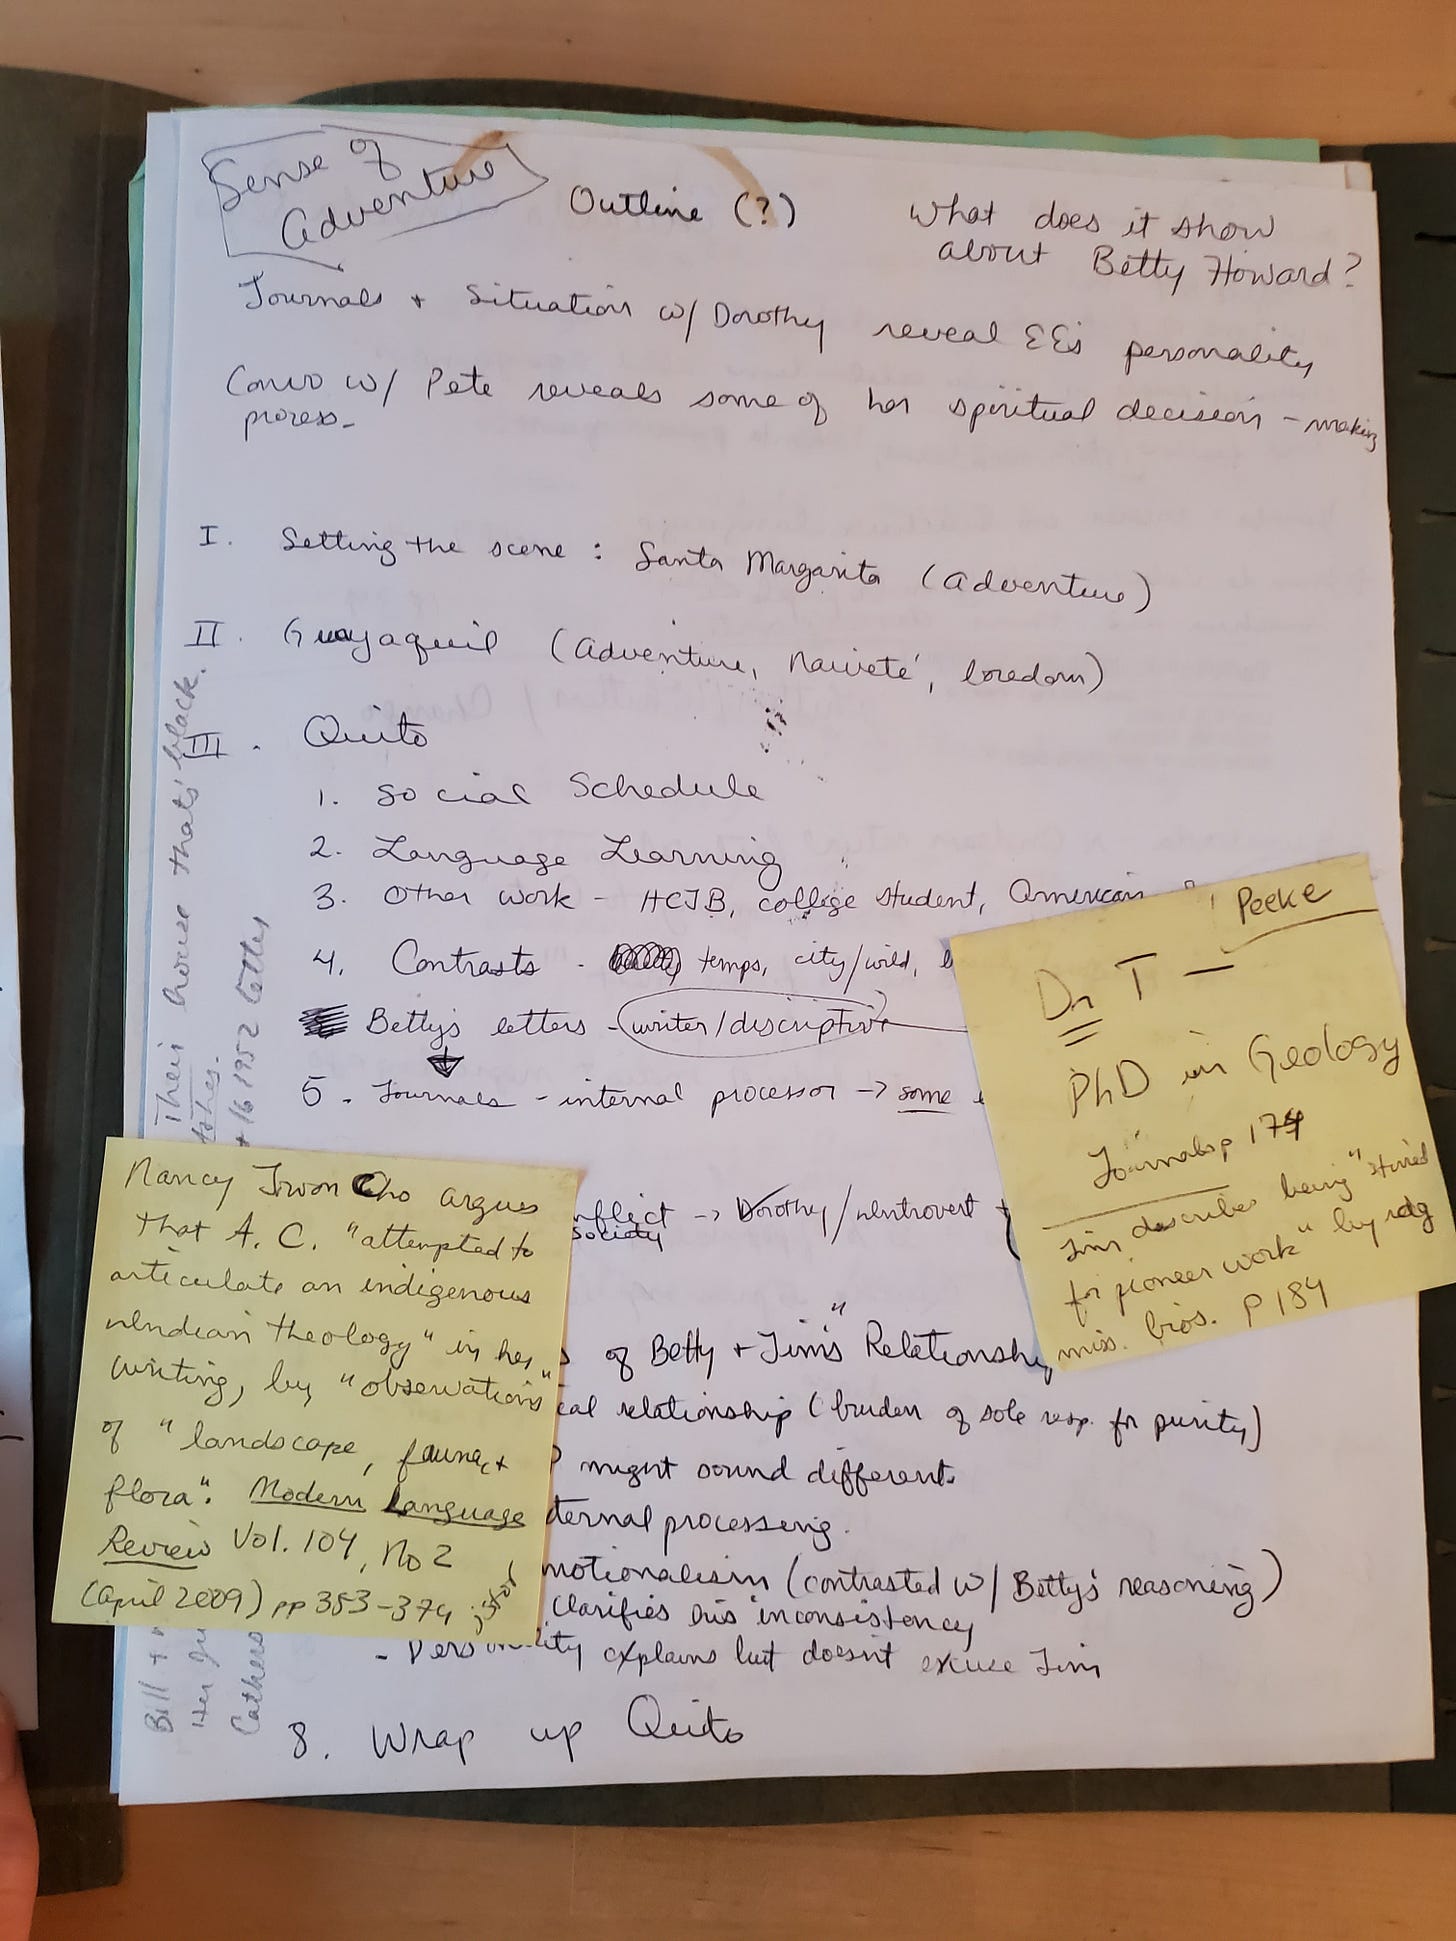 Sense of
Adventure
Outline (?)
What does it show
about Betty Howard?
Journals + Situation w/ Dorothy reveal EE's personality
Convo w/ Pete reveals some of her spiritual decision-making
process.
I. Setting the scene: Santa Margarita (adventure)
II. Guayaquil (adventure, naiveté, boredom)
III. Quito
1. Social Schedule
2. Language Learning
3. Other work - HCJB, college student, American
4. Contrasts - temps, city/wild,
Betty's letters - writer/descriptive
5. Journals - internal processor → some
nflict → Dorothy/introvert +
society
of Betty + Jim's "Relationship
cal relationship (burden of sole resp. for purity)
might sound different.
ternal processing.
motionalism (contrasted w/ Betty's reasoning)
clarifies this inconsistency
- Personality explains but doesn't excuse Jim
8. Wrap up Quito
Their house that's black.
+ 16 1952 letter
Bill +
Her
Cathers
Nancy Jiwon Cho argues
that A. C. "attempted to
articulate an indigenous
Indian theology" in her
writing, by "observations"
of "landscape, fauna, +
flora". Modern Language
Review Vol. 104, No 2
(April 2009) pp 353-374
Dr T - Peeke
PhD in Geology
Journals p 174
Jim describes being "stirred
for pioneer work" by rdg
miss. bios. p 184